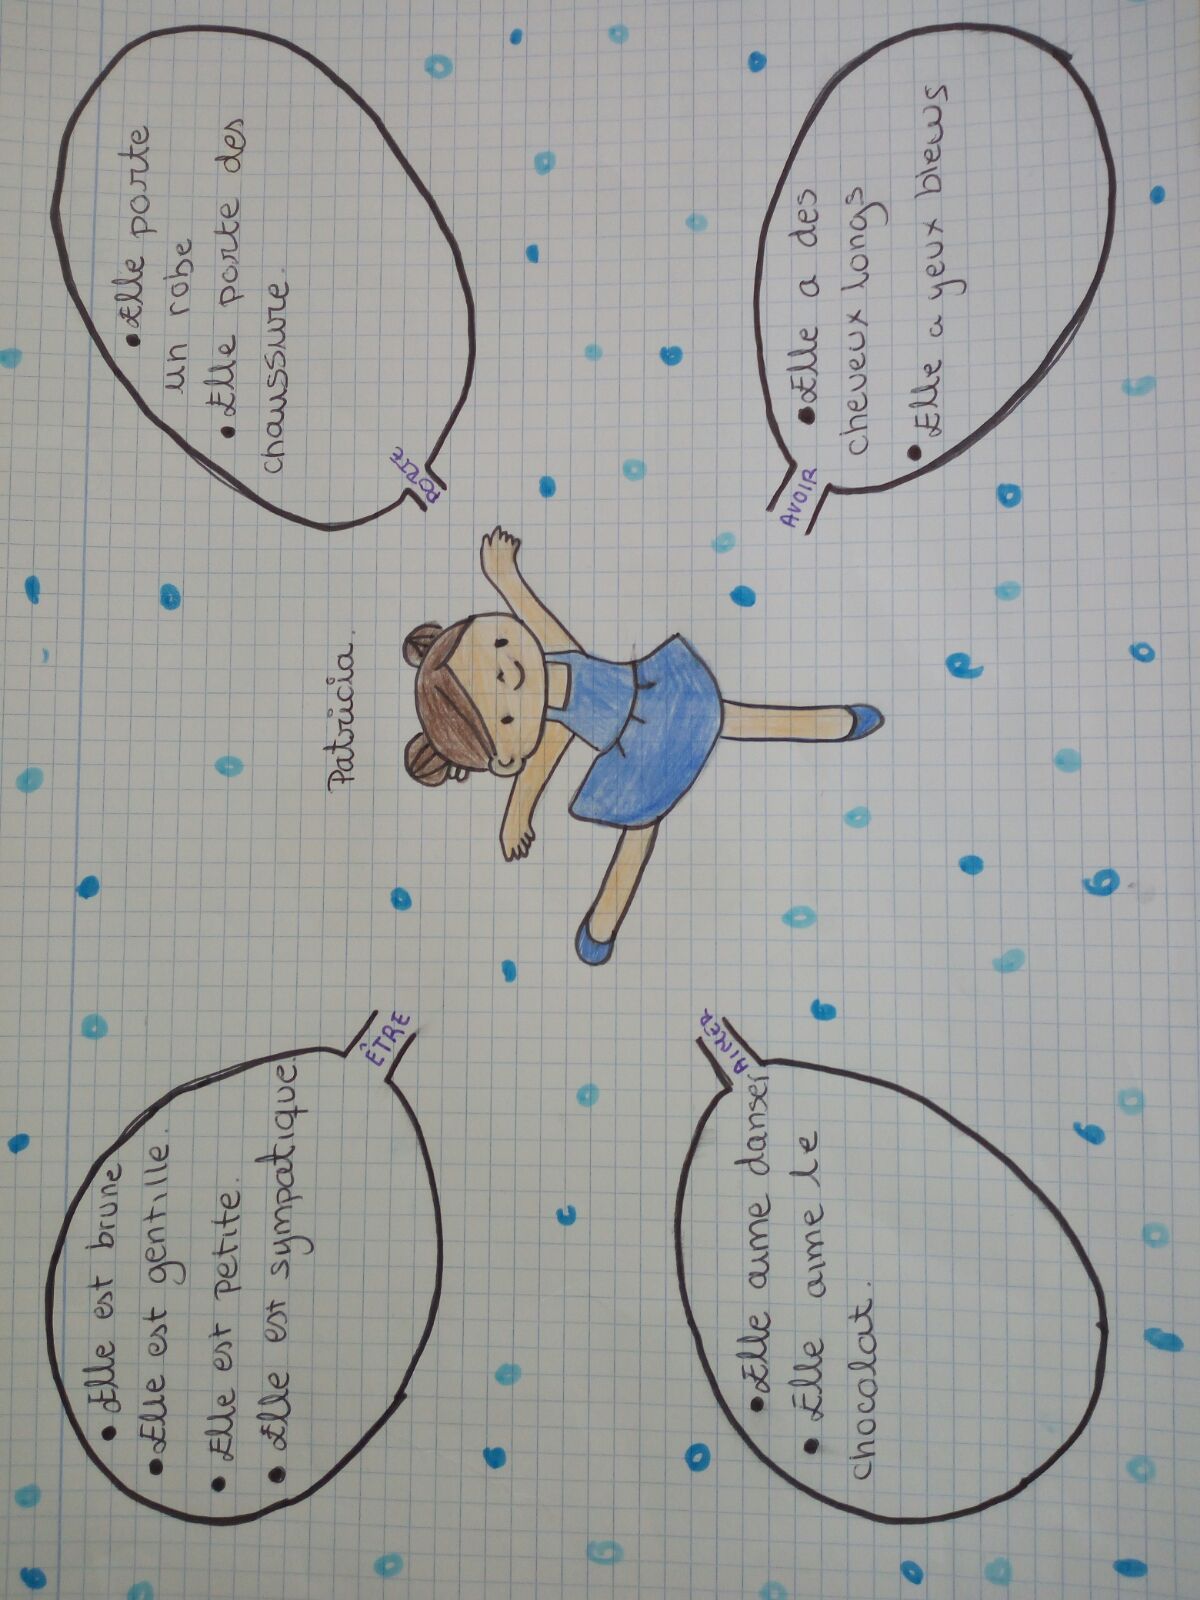 Patricia.
ÊTRE
• Elle est brune
• Elle est gentille.
• Elle est petite.
• Elle est sympatique.
PORTE
• Elle porte
un robe
• Elle porte des
chaussure.
AIMER
• Elle aime danser
• Elle aime le
chocolat.
AVOIR
• Elle a des
cheveux longs
• Elle a yeux bleus